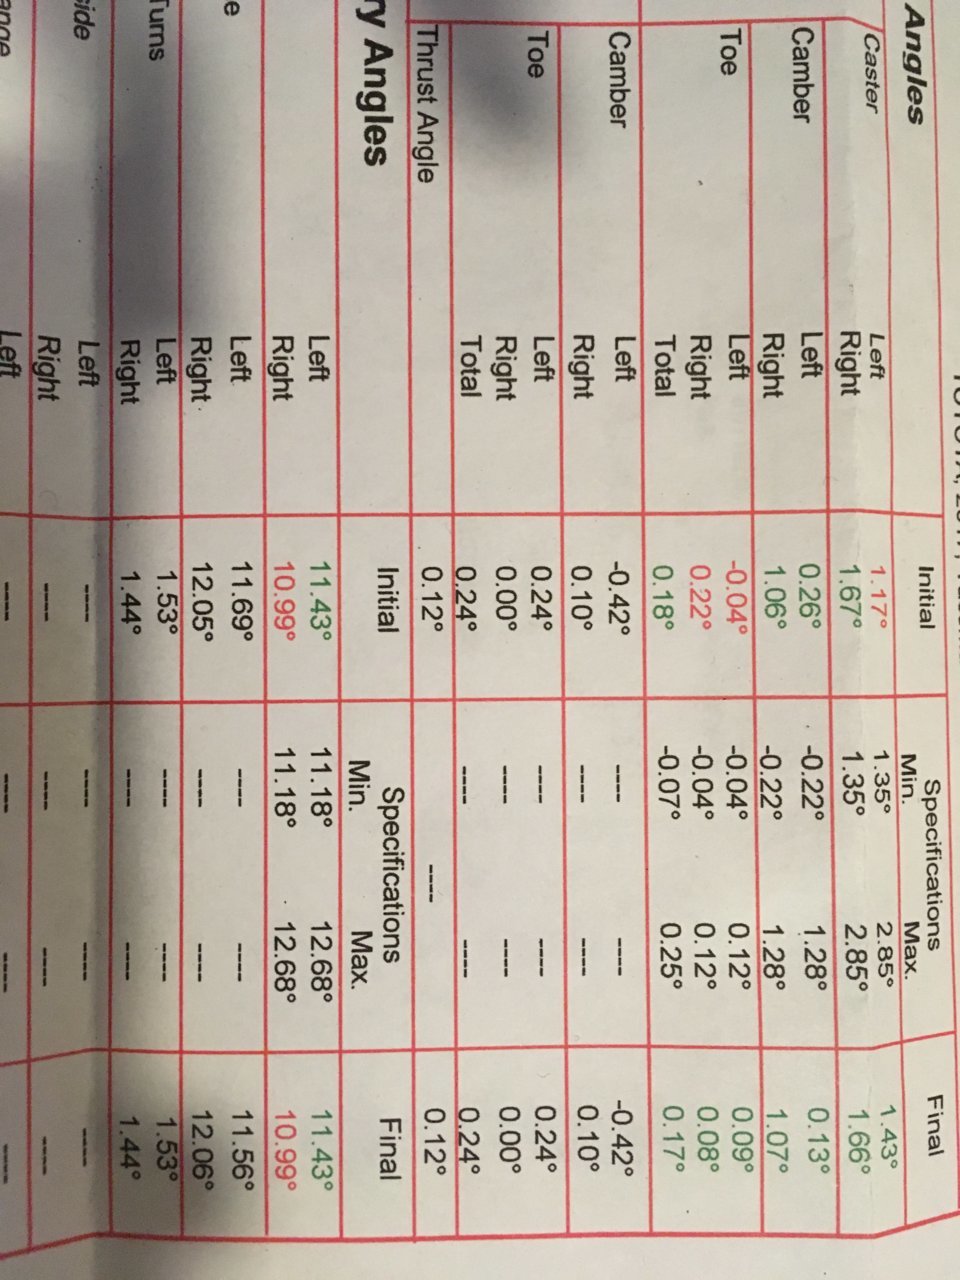 Angles Initial Specifications Final
Min. Max.
Caster Left 1.17° 1.35° 2.85° 1.43°
Right 1.67° 1.35° 2.85° 1.66°
Camber Left 0.26° -0.22° 1.28° 0.13°
Right 1.06° -0.22° 1.28° 1.07°
Toe Left -0.04° -0.04° 0.12° 0.09°
Right 0.22° -0.04° 0.12° 0.08°
Total 0.18° -0.07° 0.25° 0.17°
Camber Left -0.42° ---- ---- -0.42°
Right 0.10° ---- ---- 0.10°
Toe Left 0.24° ---- ---- 0.24°
Right 0.00° ---- ---- 0.00°
Total 0.24° ---- ---- 0.24°
Thrust Angle 0.12° ---- 0.12°
ry Angles Initial Specifications Final
Min. Max.
Left 11.43° 11.18° 12.68° 11.43°
Right 10.99° 11.18° 12.68° 10.99°
e Left 11.69° ---- ---- 11.56°
Right 12.05° ---- ---- 12.06°
Turns Left 1.53° ---- ---- 1.53°
Right 1.44° ---- ---- 1.44°
side Left ---- ---- ---- ----
Right ---- ---- ---- ----
ange Left ---- ---- ---- ----